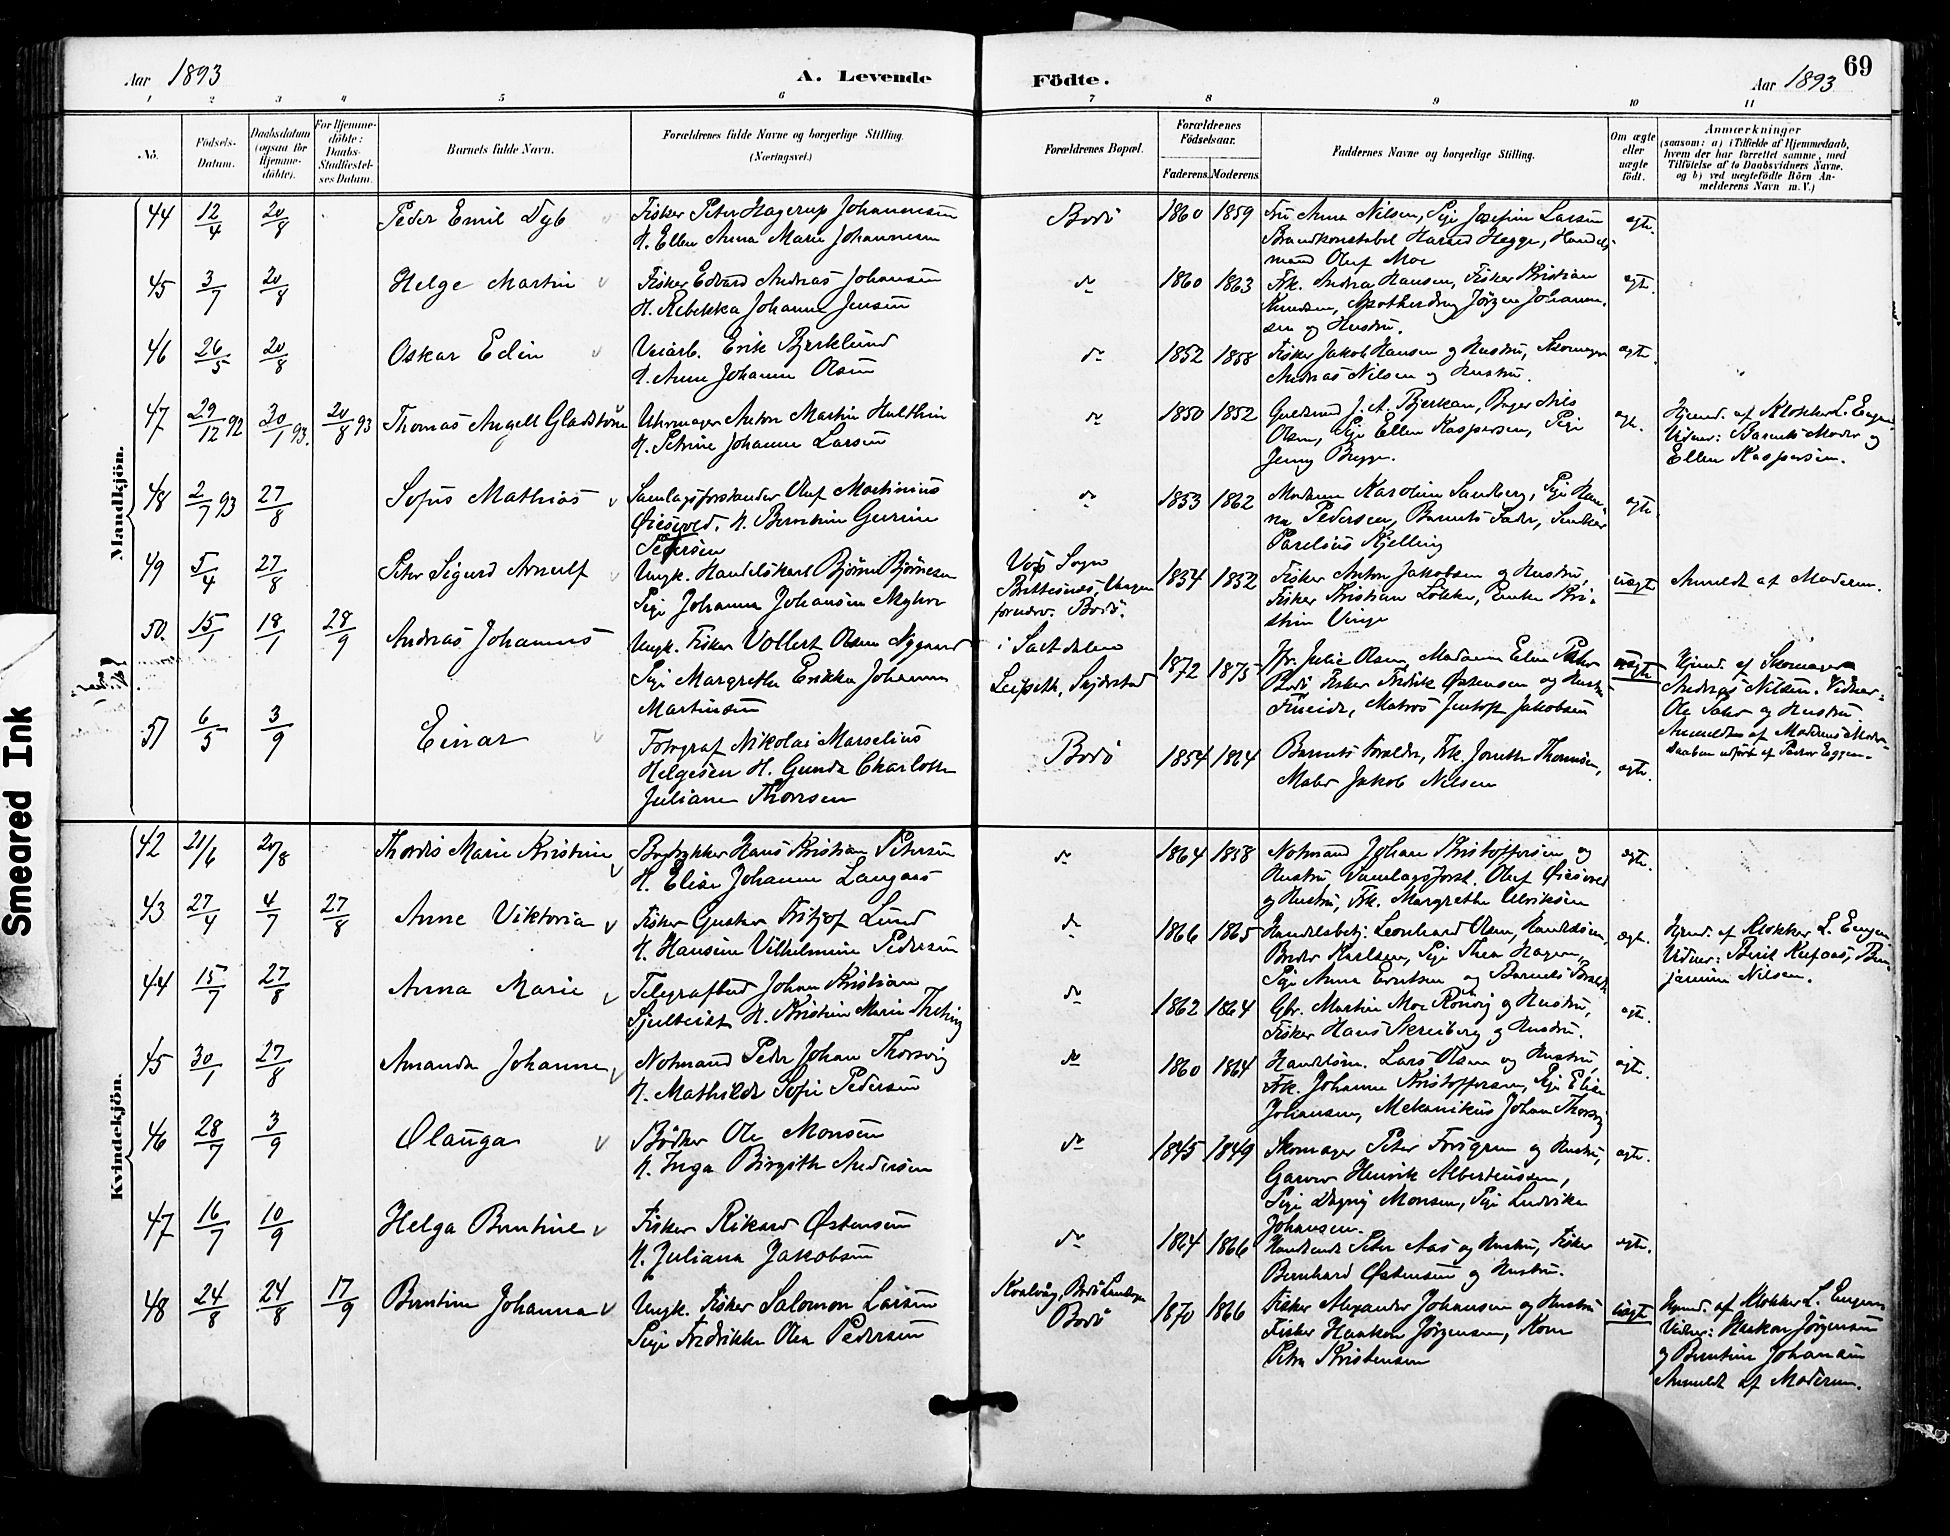 Aar 1893
A. Levende
Födte.
Aar 1893
69
1 2 3 4 5 6 7 8 9 10 11
No.
Födsels-Datum.
Daabsdatum (ogsaa for Hjemme-döbte).
For Hjemme-döbte: Daabs-Stadfæstel-ses Datum.
Barnets fulde Navn.
Forældrenes fulde Navne og borgerlige Stilling.
(Næringsvei.)
Forældrenes Bopæl.
Forældrenes Födselsaar.
Faderens. Moderens.
Faddernes Navne og borgerlige Stilling.
Om ægte eller uægte födt.
Anmærkninger
(saasom: a) i Tilfælde af Hjemmedaab,
hvem der har forrettet samme, med
Tilföielse af to Daabsvidners Navne.
og b) ved uægtefödte Börn An-
melderens Navn m. V.)
Mandkjön.
44 12/4 20/8 Peder Emil Dyb
Fisker Peter Hagerup Johannesen
H. Ellen Anna Marie Johannesen
Bodö 1860 1859
Fru Anna Nilsen, Pige Josefine Larsen
Brandkonstabel Harald Hegge, Handels-
mand Oluf Moe
ægte.
45 3/7 20/8 Helge Martin
Fisker Edvard Andreas Johansen
H. Rebekka Johanna Jensen
do 1860 1863
Frk. Andrea Hansen, Fisker Kristian
Knudsen, Apotherdreng Jørgen Johann-
sen og Hustru.
ægte.
46 26/5 20/8 Oskar Edin
Veiarb. Erik Bjerklund
H. Anne Johanne Olsen
do 1852 1858
Fisker Jakob Hansen og Hustru, Skomager
Andreas Nilsen og Hustru.
ægte.
47 29/12 92 30/1 93. 20/8 93 Thomas Angell Gladstone
Uhrmager Anton Martin Hulthin
H. Petrine Johanne Larsen
do 1850 1852
Guldsmed J. A. Bjerkan, Bager Nils
Olsen, Pige Ellen Kaspersen, Pige
Jenny Brygge.
ægt.
Hjemd. af Klokker L. Engen
Vidner: Barnets Moder og
Ellen Kaspersen.
48 2/7 93 27/8 Sofus Mathias
Samlagsforstander Oluf Martinius
Øiesved. H. Berntine Gurine
Petersen
do 1853 1862
Madame Karoline Sandberg, Pige Han-
na Pedersen, Barnets Fader, Snedker
Parelius Kjelling
ægte.
49 5/4 27/8 Peter Sigurd Arnulf
Ungk. Handelskarl Bjørn Bjørnesen
Pige Johanna Johansen Myhre
Sogn
Brettesnes, Vaagen
forøvr. Bodö.
1854 1852
Fisker Anton Jakobsen og Hustru,
Fisker Kristian Løkke, Enke Kri-
stine Vinje
uægte
Anmeldt af Moderen.
50. 15/1 18/1 28/9 Andreas Johannes
Ungk. Fisker Vollert Olsen Nygaard
Pige Margrethe Erikka Johanna
Martinsen
i Saltdalen
Leifseth, Skjerstad
1872 1875
Jfr. Julie Olsen, Madame Elen
Bodö Fisker Fredrik Østensen og Hustru
Fineide, Matros Jentoft Jakobsen
uægte
Hjemd. af Skomager
Andreas Nilsen. Vidner-
Ole og Hustru.
Anmeldt af Moderens Moder.
Daaben udført af Pastor Eggen.
51 6/5 3/9 Einar
Fotograf Nikolai Marselius
Helgesen H. Gunda Charlotte
Juliane Thomsen
Bodö 1854 1864
Barnets Forældre, Frk. Jonette Thomsen,
Maler Jakob Nilsen
ægte.
Kvindekjön.
42 21/6 20/8 Thordis Marie Kristine
Bogtrykker Hans Kristian Petersen
H. Elise Johanne Langaas
do 1864 1858
Notmand Johan Kristoffersen og
Hustru Samlagsforst. Oluf Øiesved
og Hustru, Frk. Margrethe Ulriksen
ægte.
43 27/4 4/7 27/8 Anne Viktoria
Fisker Gustav Fritjof Lund
H. Hansine Vilhelmine Pedersen
do 1866 1865
Handelsbetj: Leonhard Olsen, Handelsm.
Peder Karlsen, Pige Thea Hagen,
Pige Anna Berntsen og Barnets Forældre
ægt.
Hjemd. af Klokker L. Engen
Vidner: Berit Refsaas, Ben-
jamin Nilsen.
44 15/7 27/8 Anna Marie
Telegrafbud Johan Kristian
H. Kristine Marie
do 1862 1864
Gbr. Martin Moe Rönvig og Hustru,
Fisker Hans Skreiberg og Hustru.
ægt.
45 30/1 27/8 Amanda Johanne
Notmand Peder Johan Thorsvig
H. Mathilde Sofie Pedersen
do 1860 1864
Handelsm. Lars Olsen og Hustru,
Frk. Johanne Kristoffersen, Pige Elise
Johansen, Mekanikus Johan Thorsvig
ægte.
46 28/7 3/9 Olauga
Bødker Ole Monsen
H. Inga Birgithe Andersen
do 1845 1849
Skomager Peter Forsgren og Hustru,
Garver Henrik Albertinussen,
Pige Dagny Monsen, Pige Ludvikke
Johansen.
ægte.
47 16/7 10/9 Helga Berntine
Fisker Rikard Østensen
H. Juliana Jakobsen
do 1864 1866
Handlende Peter Aas og Hustru, Fisker
Bernhard Østensen og Hustru.
ægte.
48 24/8 24/8 17/9 Berntine Johanna
Ungk. Fisker Salomon Larsen
Pige Fredrikke Olea Pedersen
Kvalvåg, Bodö Landsogn
Bodö
1870 1866
Fisker Alexander Johansen og Hustru
Fisker Haakon Jørgensen, Kone
Petra Kristensen
uægte
Hjemd. af Klokker L. Engen
Vidner: Haakon Jørgensen
og Berntine Johansen
Anmeldt af Moderen.
Smeared Ink